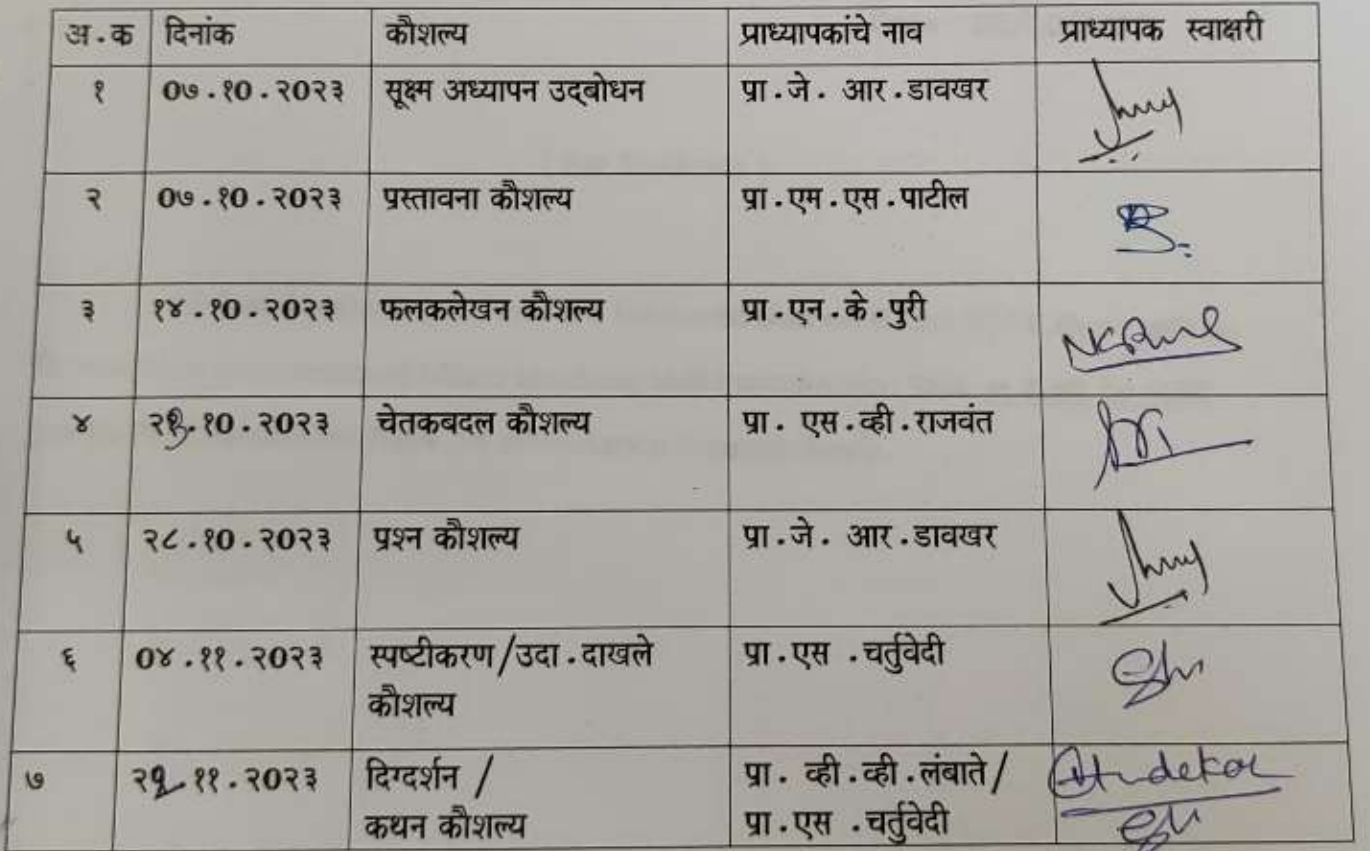 अ.क दिनांक कौशल्य प्राध्यापकांचे नाव प्राध्यापक स्वाक्षरी
१ ०७.१०.२०२३ सूक्ष्म अध्यापन उद्‌बोधन प्रा.जे. आर.डावखर
२ ०७.१०.२०२३ प्रस्तावना कौशल्य प्रा.एम.एस.पाटील
३ १४.१०.२०२३ फलकलेखन कौशल्य प्रा.एन.के.पुरी
NKPuri
४ .१०.२०२३ चेतकबदल कौशल्य प्रा. एस.व्ही.राजवंत
५ २८.१०.२०२३ प्रश्न कौशल्य प्रा.जे. आर.डावखर
६ ०४.११.२०२३ स्पष्टीकरण/उदा.दाखले प्रा.एस .चर्तुवेदी
कौशल्य
७ .११.२०२३ दिग्दर्शन / प्रा. व्ही.व्ही.लंबाते/
कथन कौशल्य प्रा.एस .चर्तुवेदी